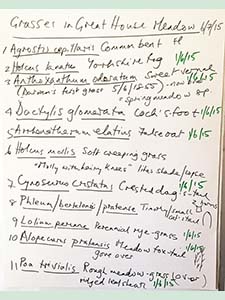 Grasses in Great House Meadow 1/9/15
1 Agrostis capillaris Common bent fl
2 Holcus lanatus Yorkshire fog 1/6/15
3 Anthoxanthum odoratum Sweet vernal
(Darwin's first grass 5/6/1855) - now 1/6/15
= Spring meadow sp.
4 Dactylis glomerata Cock's-foot 1/6/15
5 Arrhenatherum elatius False oat 1/6/15
6 Holcus mollis Soft creeping grass
"Molly with hairy knees" likes shade/
7 Cynosurus cristatus Crested dog's-tail 1/6/15
8 Phleum/bertolonii/pratense Timothy/small cat's-tail
9 Lolium perenne Perennial rye-grass 1/6/15
10 Alopecurus pratensis Meadow fox-tail 1/6/15
gone over
11 Poa trivialis Rough meadow-grass (over)
ridged leaf sheath 1/6/15